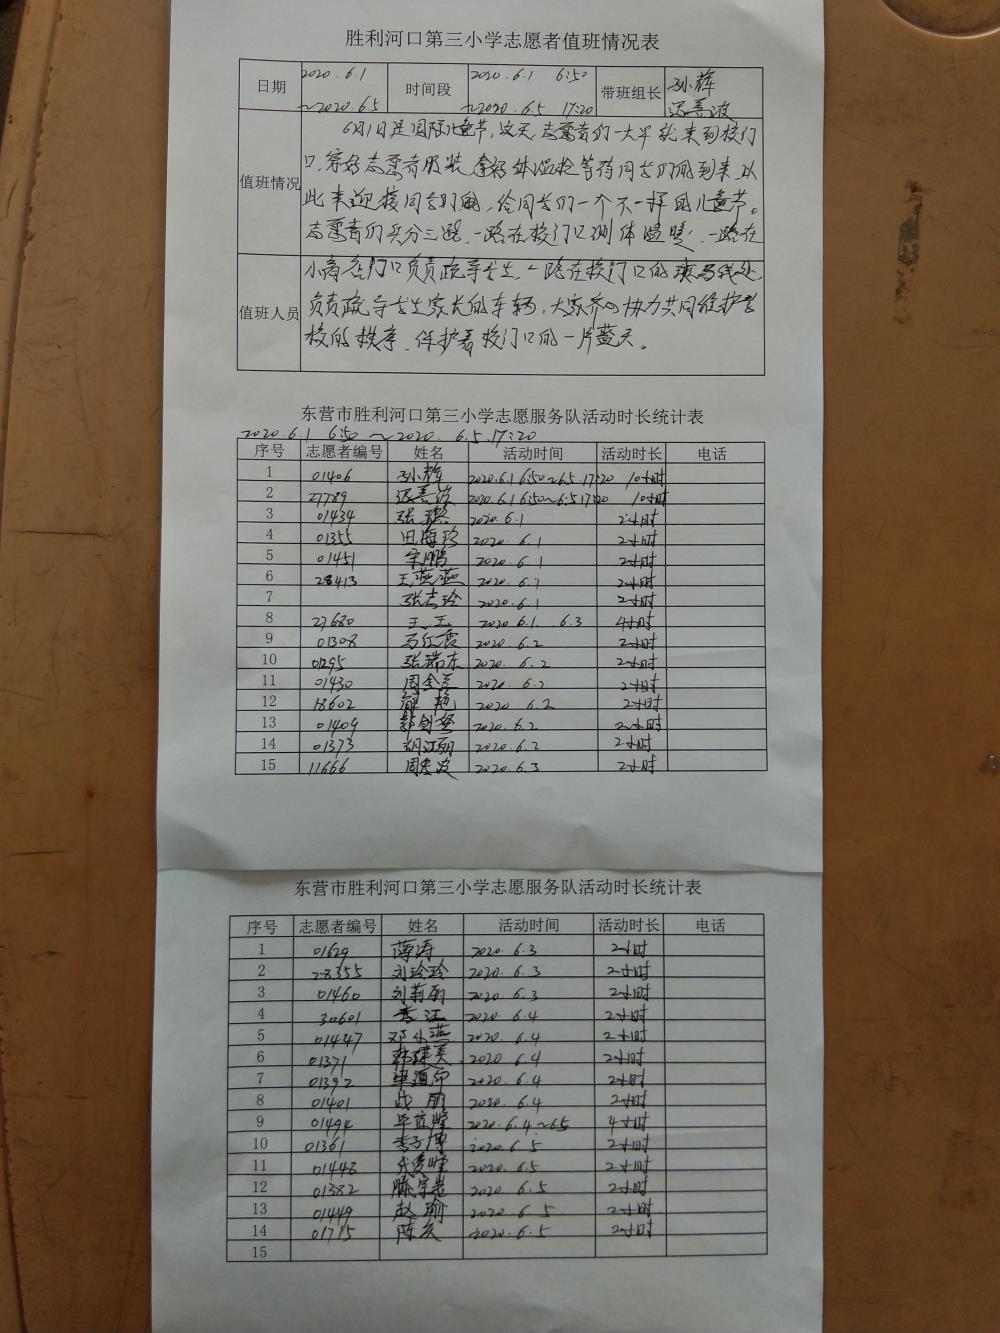 胜利河口第三小学志愿者值班情况表
日期 2020.6.1 ~2020.6.5 时间段 2020.6.1 6:50 ~2020.6.5 17:20 带班组长 孙辉
值班情况 6月1日是国际儿童节,这天,志愿者们一大早就来到校门
口,穿好志愿者服装,拿好体温枪等待同学们的到来,以
此来迎接同学们的,给同学们一个不一样的儿童节。
志愿者们兵分三路,一路在校门口测体温,一路在
门口负责疏导学生,一路在校门口的斑马线处,
值班人员 负责疏导学生家长的车辆,大家齐心协力共同维护学
校的秩序,保护着校门口的一片蓝天。
东营市胜利河口第三小学志愿服务队活动时长统计表
2020.6.1 6:50 ~2020.6.5 17:20
序号 志愿者编号 姓名 活动时间 活动时长 电话
1 01406 孙辉 2020.6.1 6:50~6.5 17:20 10小时
2 27789 2020.6.1 6:50~6.5 17:20 10小时
3 01434 张 2020.6.1 2小时
4 01355 田海珍 2020.6.1 2小时
5 01451 宋鹏 2020.6.1 2小时
6 28413 王燕燕 2020.6.1 2小时
7 张志玲 2020.6.1 2小时
8 27680 王玉 2020.6.1 .6.3 4小时
9 01308 马红霞 2020.6.2 2小时
10 01295 张瑞东 2020.6.2 2小时
11 01430 周金 2020.6.2 2小时
12 18602 艳 2020.6.2 2小时
13 01409 郭剑 2020.6.2 2小时
14 01373 胡江丽 2020.6.2 2小时
15 11666 周 波 2020.6.3 2小时
东营市胜利河口第三小学志愿服务队活动时长统计表
序号 志愿者编号 姓名 活动时间 活动时长 电话
1 01629 薄涛 2020.6.3 2小时
2 28355 刘玲玲 2020.6.3 2小时
3 01460 刘莉丽 2020.6.3 2小时
4 30601 李江 2020.6.4 2小时
5 01447 邓小燕 2020.6.4 2小时
6 01371 韩建美 2020.6.4 2小时
7 01392 2020.6.4 2小时
8 01401 战朋 2020.6.4 2小时
9 01494 毕 2020.6.4~6.5 4小时
10 01361 李 博 2020.6.5 2小时
11 01448 2020.6.5 2小时
12 01382 陈宇 2020.6.5 2小时
13 01449 赵瑜 2020.6.5 2小时
14 01715 陈 2020.6.5 2小时
15